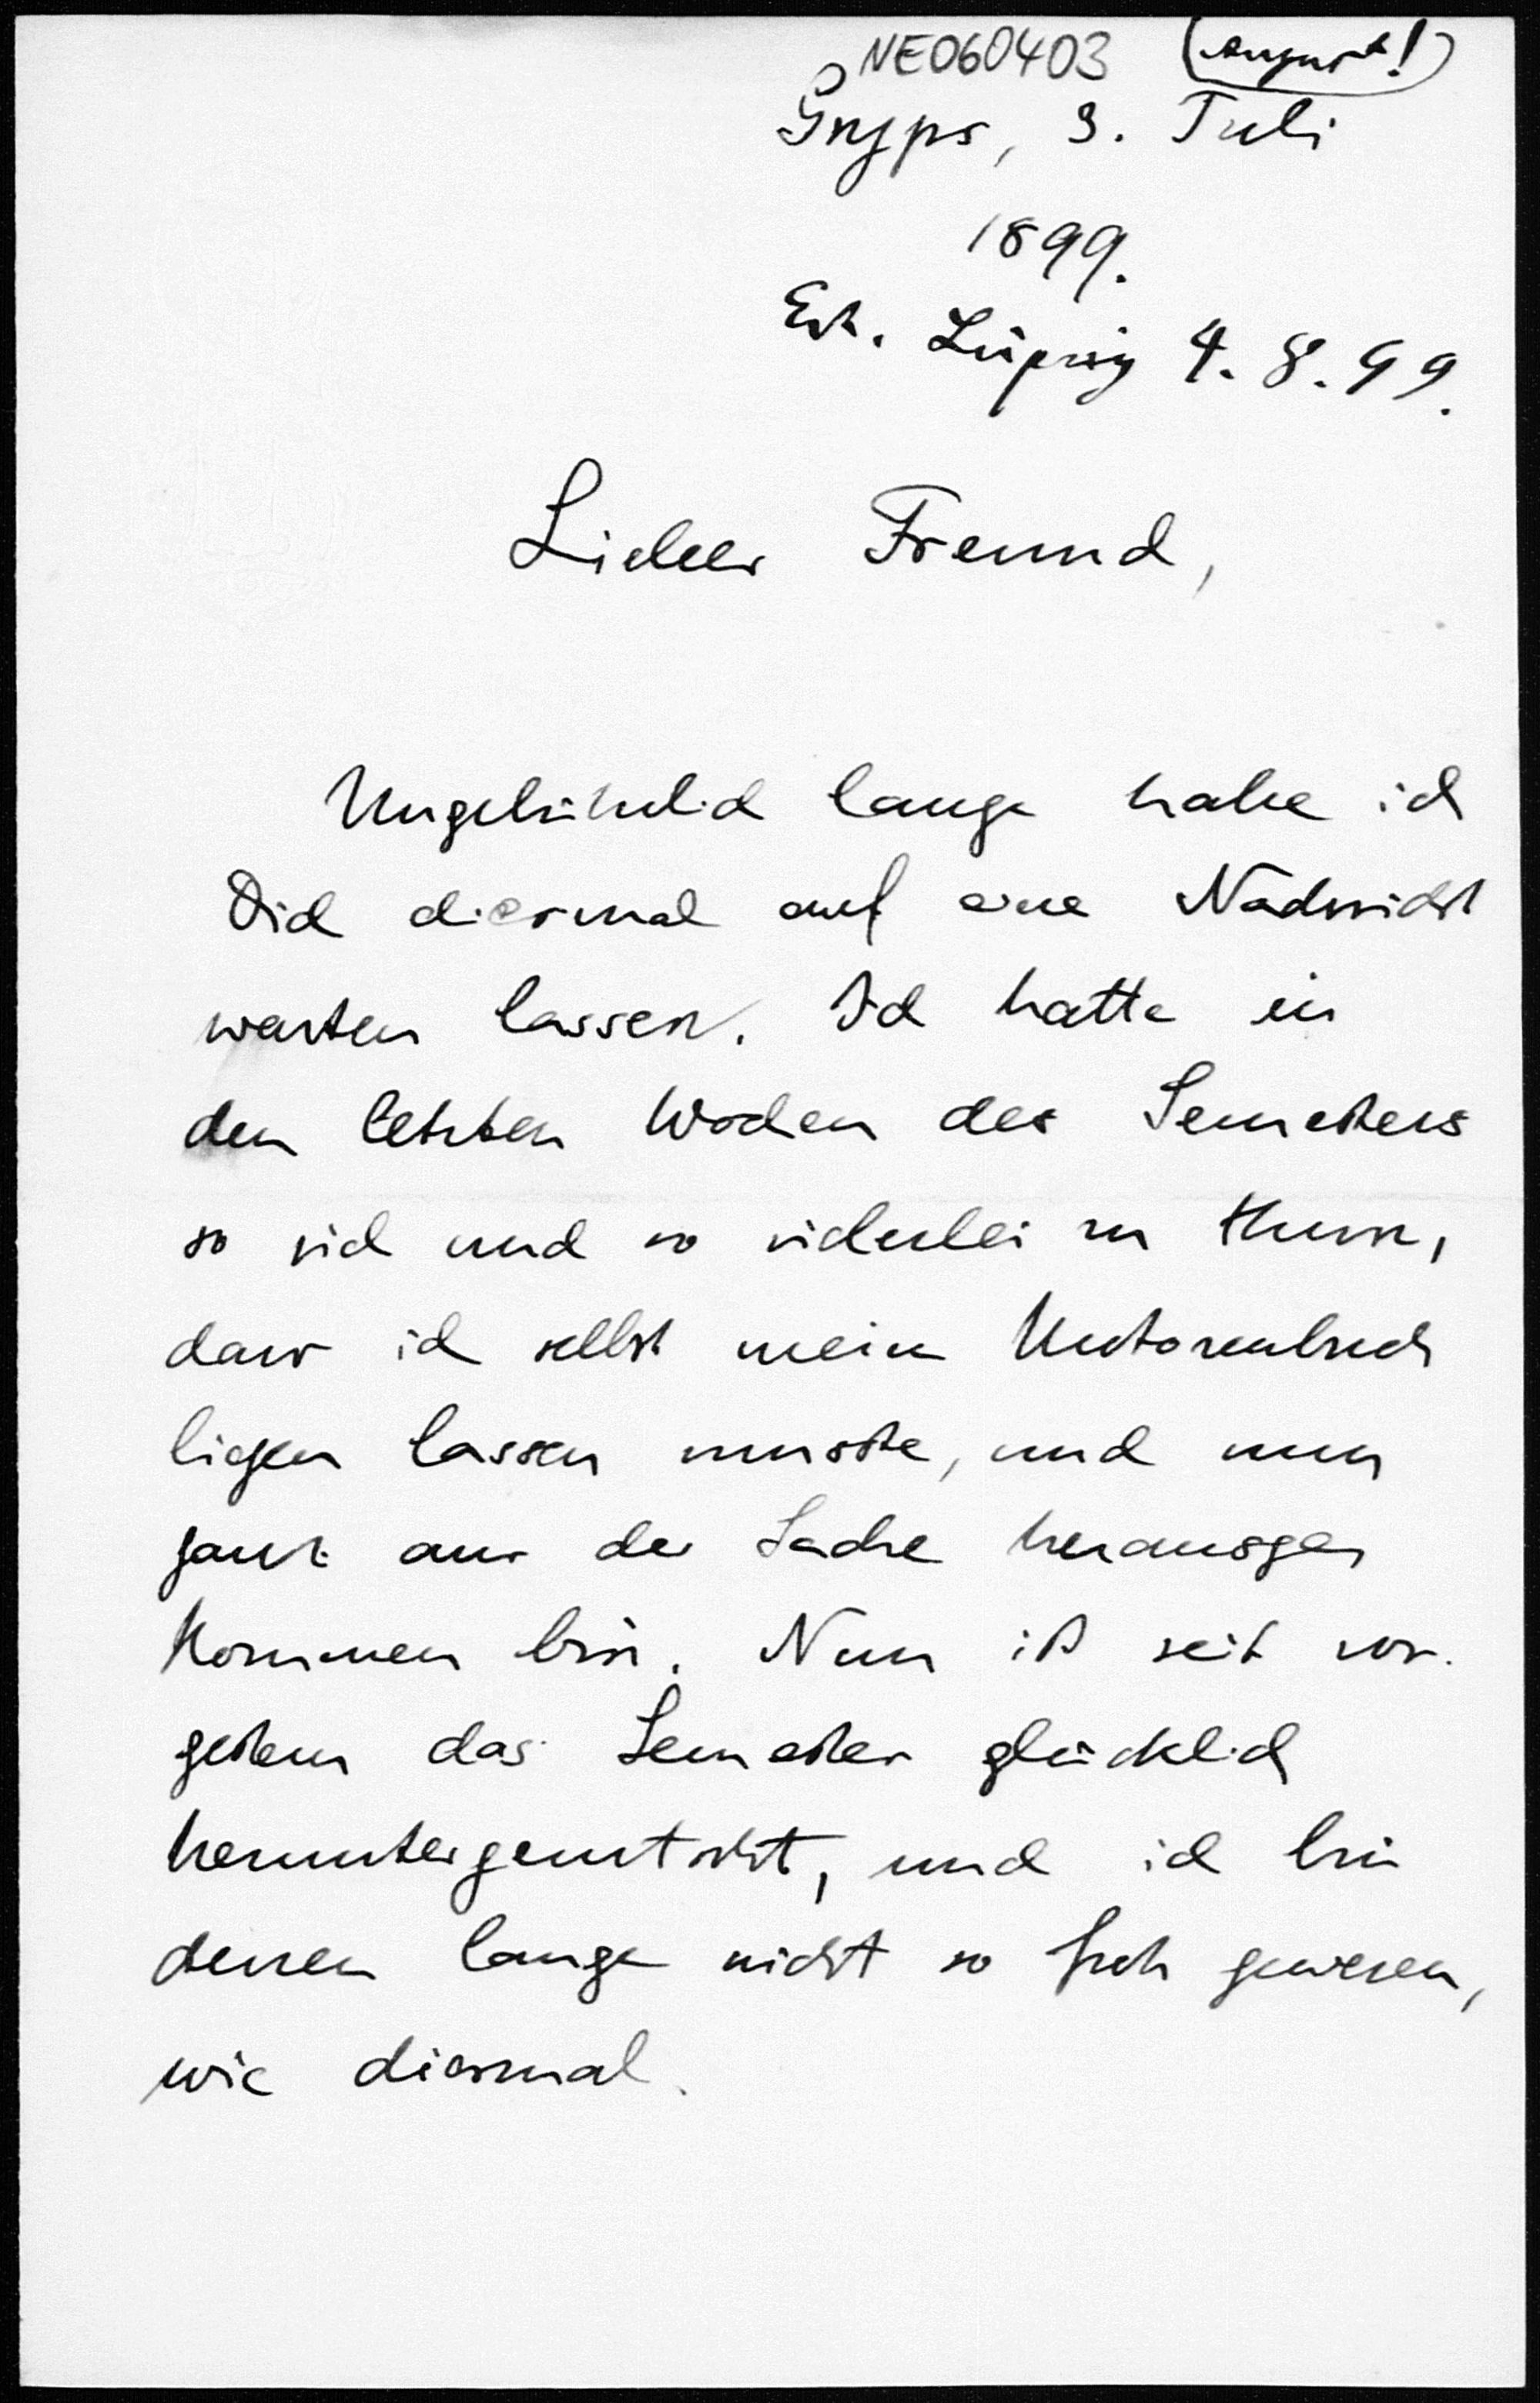 NE060403 (August!)
Gryps, 3. Juli
1899.
Erh. Leipzig 4. 8. 99.
Lieber Freund,
Ungebührlich lange habe ich
Dich diesmal auf eine Nachricht
warten lassen. Ich hatte in
den letzten Wochen des Semesters
so viel und so vielerlei zu thun,
dass ich selbst mein Autorenbuch
liegen lassen musste, und nun
ganz aus der Sache herausge
kommen bin. Nun ist seit vor.
gestern das Semester glücklich
heruntergeputscht, und ich bin
dessen lange nicht so froh gewesen,
wie diesmal.